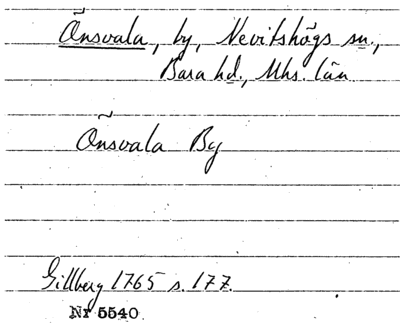 Õnsvala, by, Nevitshõgs sn.,
Bara hd., Mhs. län
Õnsvala By
Gillberg 1765 s. 177.
Nr 5540